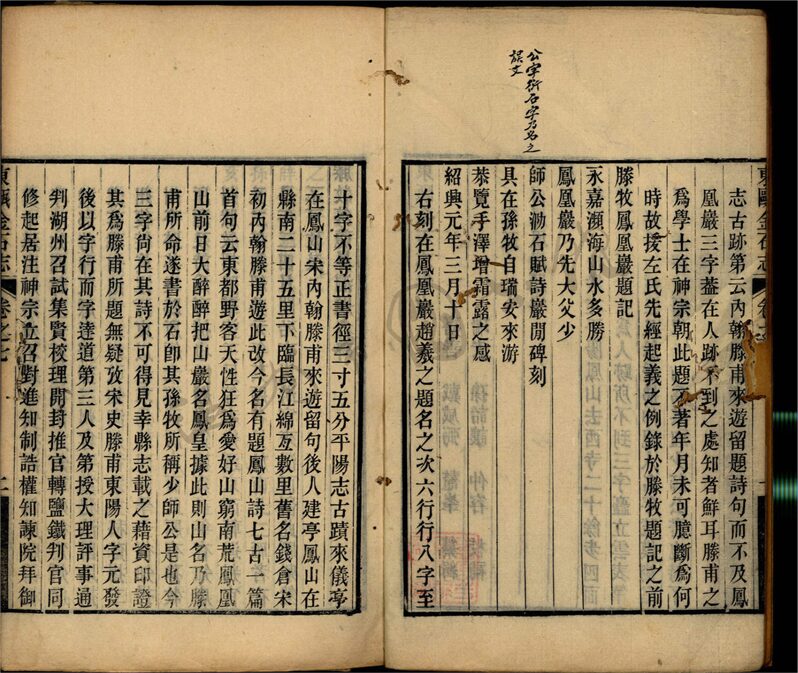 公字衍石字乃名之
誤文
東甌金石志
卷之七
志古跡第云內翰滕甫來遊留題詩句而不及鳳
凰巖三字葢在人跡不到之處知者鮮耳滕甫之
爲學士在神宗朝此題不著年月未可臆斷爲何
時故援左氏先經起義之例錄於滕牧題記之前
滕牧鳳凰巖題記
永嘉瀕海山水多勝
鳳凰巖乃先大父少
師公泐石賦詩巖閒碑刻
具在孫牧自瑞安來游
恭覽手澤增霜露之感
紹興元年三月十日
右刻在鳳凰巖趙羲之題名之次六行行八字至
十字不等正書徑三寸五分平陽志古蹟來儀亭
在鳳山宋內翰滕甫來遊留句後人建亭鳳山在
縣南二十五里下臨長江綿亙數里舊名錢倉宋
初內翰滕甫遊此改今名有題鳳山詩七古一篇
首句云東都野客天性狂爲愛好山窮南荒鳳凰
山前日大醉醉把山巖名鳳皇據此則山名乃滕
甫所命遂書於石卽其孫牧所稱少師公是也今
三字尙在其詩不可得見幸縣志載之藉資印證
其爲滕甫所題無疑攷宋史滕甫東陽人字元發
後以字行而字達道第三人及第授大理評事通
判湖州召試集賢校理開封推官轉鹽鐵判官同
修起居注神宗立召對進知制誥權知諫院拜御
東甌金石志
卷之七
二